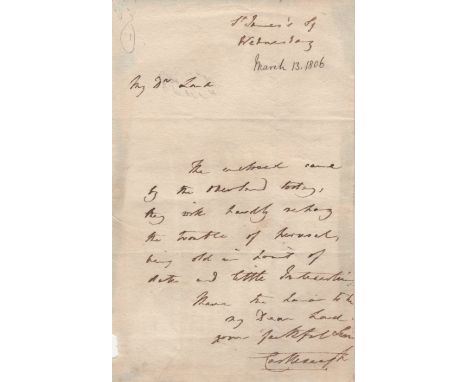 St James's Sq
Wednesday
March 13. 1806
My Dr Lord
The enclosed came
by the overland today,
they will hardly repay
the trouble of perusal,
being old in point of
date and little Interesting
Have the honor to be
my Dear Lord
your faithful Serv
Castlereagh